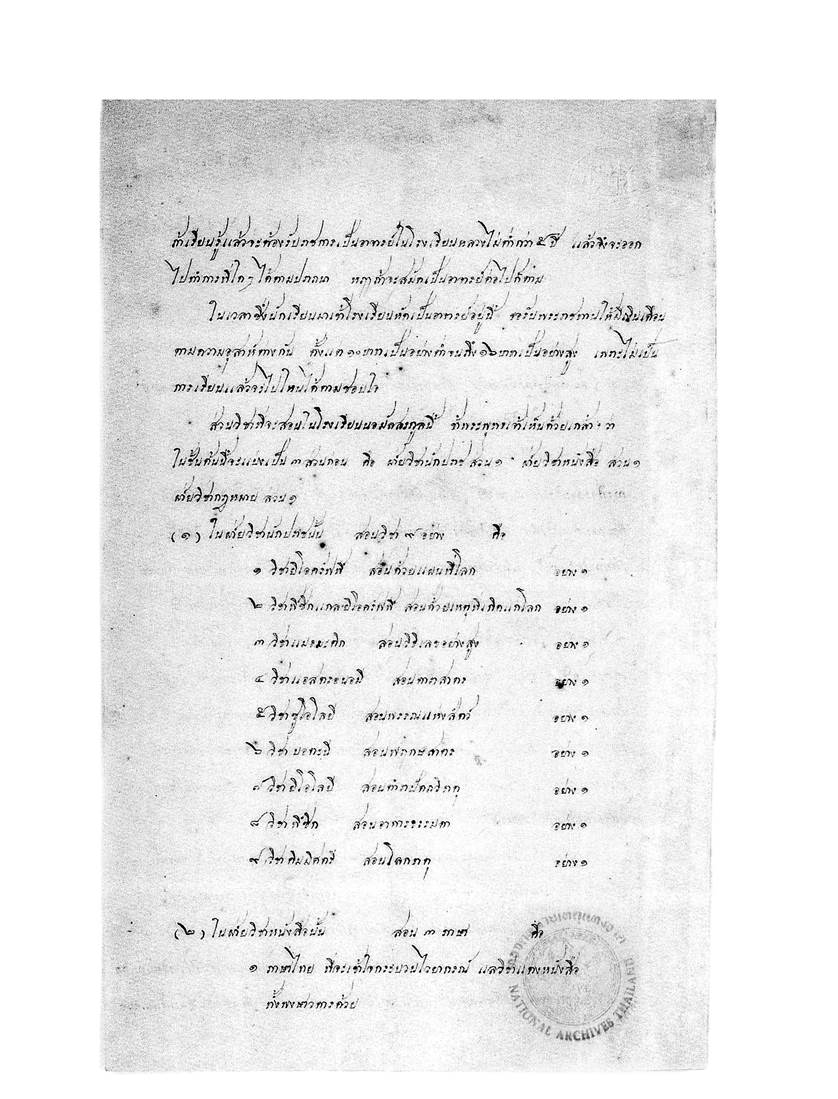 ถ้าเรียนรู้แล้วจะต้องรับราชการเป็นอาจารย์ในโรงเรียนหลวงไม่ต่ำกว่า ๕ ปี แล้วจึงจะออก
ไปทำการที่ใดๆ ได้ตามปรารถนา หฤาถ้าจะสมัคเป็นอาจารย์ต่อไปก็ตาม
ในเวลาซึ่งนักเรียนมาเข้าโรงเรียนหัดเป็นอาจารย์อยู่นี้ ขอรับพระราชทานให้มีเงินเดือน
ตามความอุสาห์ต่างกัน ตั้งแต่ ๑๐ บาทเป็นอย่างต่ำจนถึง ๑๖ บาทเป็นอย่างสูง
การเรียนแล้วจะไปไหนได้ตามชอบใจ
ส่วนวิชาที่จะสอนในโรงเรียนนอมัลสกูลนี้ ข้าพระพุทธเจ้าเห็นด้วยเกล้าฯ ว่า
ในชั้นต้นนี้จะแบ่งเป็น ๓ ส่วนก่อน คือ ฝ่ายวิชานักปราช ส่วน ๑ ฝ่ายวิชาหนังสือ ส่วน ๑
ฝ่ายวิชากฎหมาย ส่วน ๑
(๑) ในฝ่ายวิชานักปราชนั้น สอนวิชา ๙ อย่าง คือ
๑ วิชายีโอครัฟฟี สอนด้วยแผนที่โลก อย่าง ๑
๒ วิชาฟิซิกแกลยีโอครัฟฟี สอนด้วยเหตุที่เกิดแก่โลก อย่าง ๑
๓ วิชาแมธมะติก สอนวิธีเลขอย่างสูง อย่าง ๑
๔ วิชาแอสตรอนอมี สอนดาราสาตร อย่าง ๑
๕ วิชาซูโอโลยี สอนพรรณแห่งสัตว์ อย่าง ๑
๖ วิชาบอตะนี สอนพฤกษสาตร อย่าง ๑
๗ วิชายีโอโลยี สอน อย่าง ๑
๘ วิชาฟิซิก สอนอาการธรรมดา อย่าง ๑
๙ วิชาคิมมิศตรี สอนโลกธาตุ อย่าง ๑
(๒) ในฝ่ายวิชาหนังสือนั้น สอน ๓ ภาษา คือ
๑ ภาษาไทย ที่จะเข้าใจกระบวนไวยากรณ์ แลวิชาแต่งหนังสือ
ทั้งพงษาวดารด้วย
หอจดหมายเหตุแห่งชาติ
NATIONAL ARCHIVES THAILAND